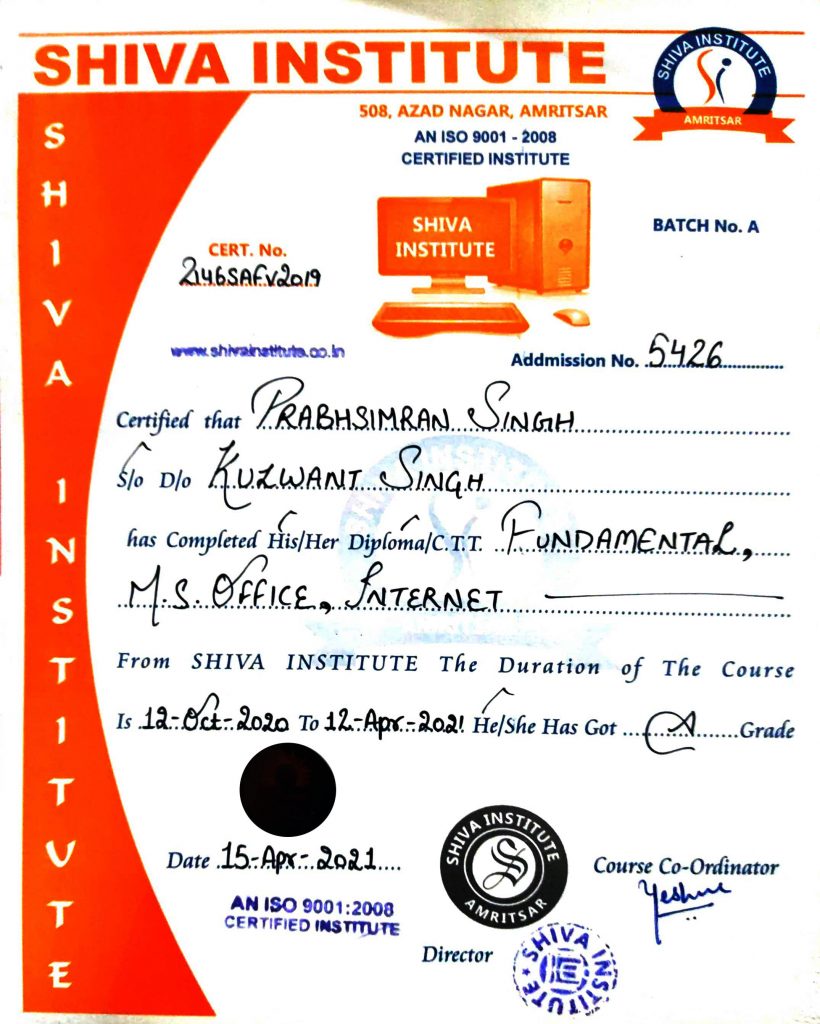 SHIVA INSTITUTE
SHIVA INSTITUTE
AMRITSAR
508, AZAD NAGAR, AMRITSAR
AN ISO 9001 - 2008
CERTIFIED INSTITUTE
SHIVA INSTITUTE
SHIVA
INSTITUTE
BATCH No. A
CERT. No.
2146SAFV2019
www.shivainstitute.co.in
Addmission No. 5426
Certified that PRABHSIMRAN SINGH
S/o D/o KULWANT SINGH
has Completed His/Her Diploma/C.T.T. FUNDAMENTAL,
M.S. OFFICE, INTERNET
From SHIVA INSTITUTE The Duration of The Course
Is 12-Oct-2020 To 12-Apr-2021 He/She Has Got A Grade
Date 15-Apr-2021
AN ISO 9001:2008
CERTIFIED INSTITUTE
SHIVA INSTITUTE
AMRITSAR
Course Co-Ordinator
Director
SHIVA INSTITUTE